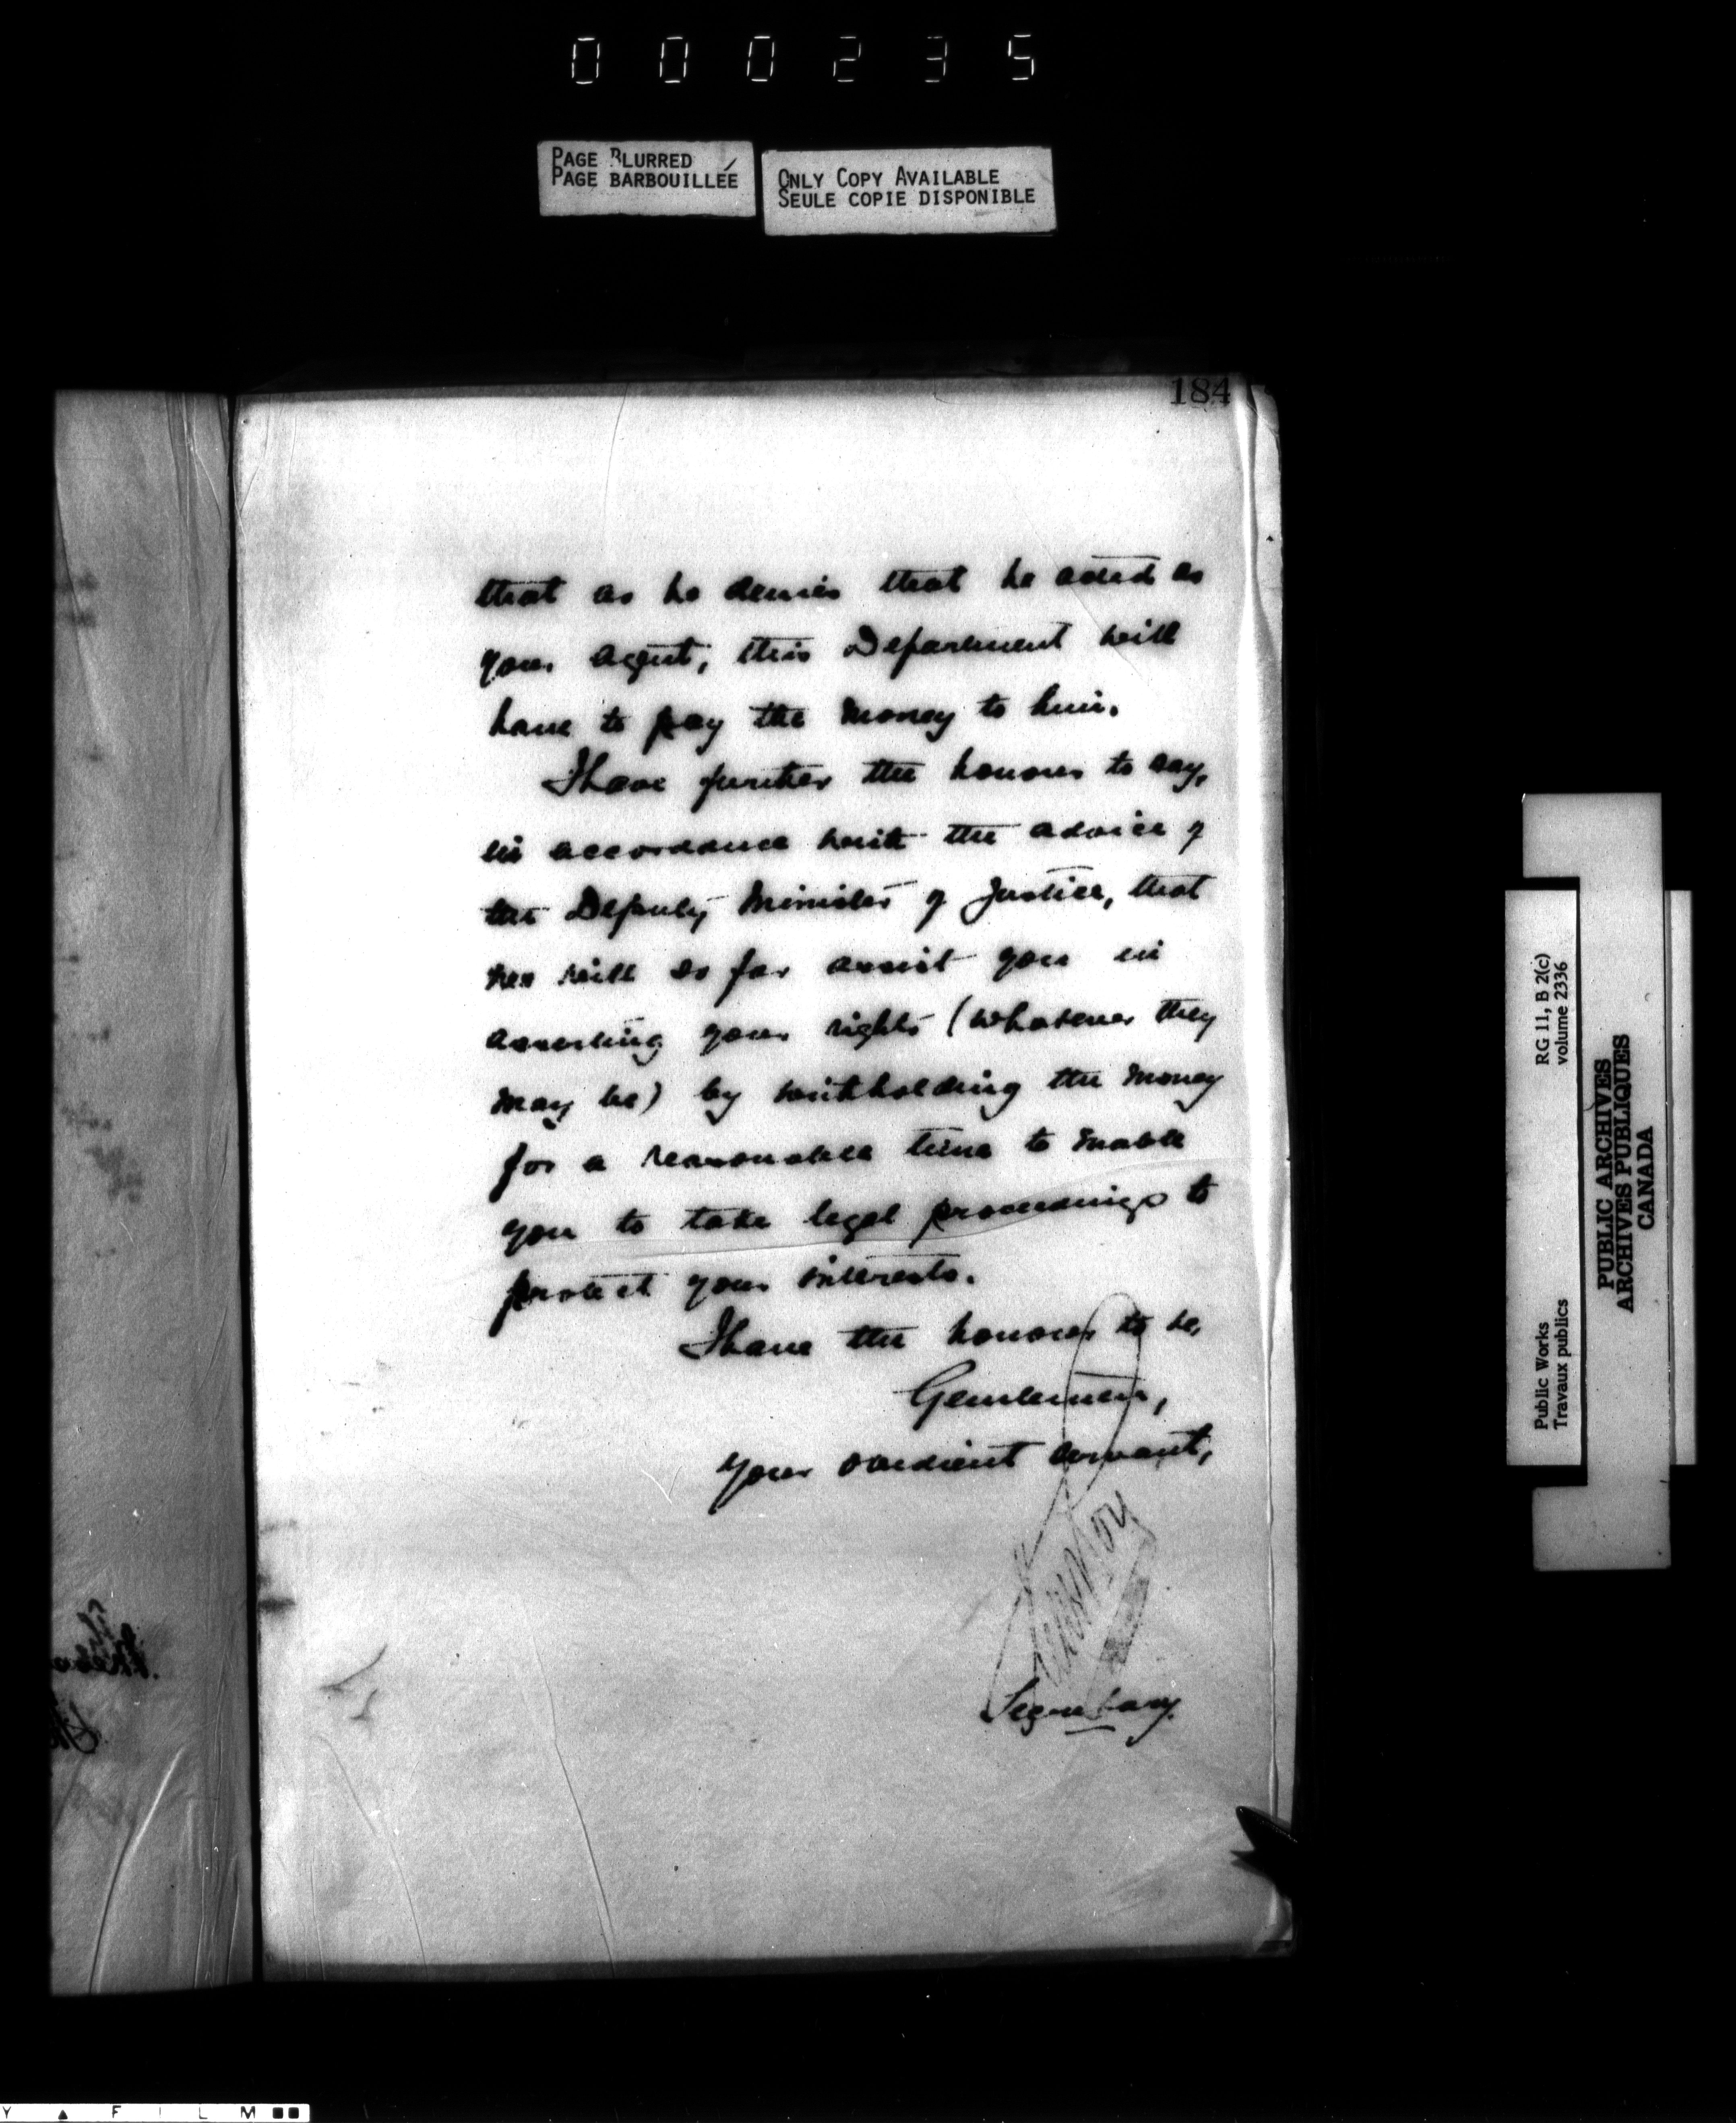 000235
PAGE BLURRED
PAGE BARBOUILLÉE
ONLY COPY AVAILABLE
SEULE COPIE DISPONIBLE
184
that as he denies that he acted as
your agent, this Department will
have to pay the money to him.
I have further the honour to say,
in accordance with the advice of
the Deputy Minister of Justice, that
we will so far assist you in
asserting your rights (whatever they
may be) by withholding the money
for a reasonable time to enable
you to take legal proceedings to
protect your interests.
I have the honour to be,
Gentlemen,
Your obedient servant,
Secretary.
RG 11, B 2(c)
volume 2336
Public Works
Travaux publics
PUBLIC ARCHIVES
ARCHIVES PUBLIQUES
CANADA
Y ▲ F I L M